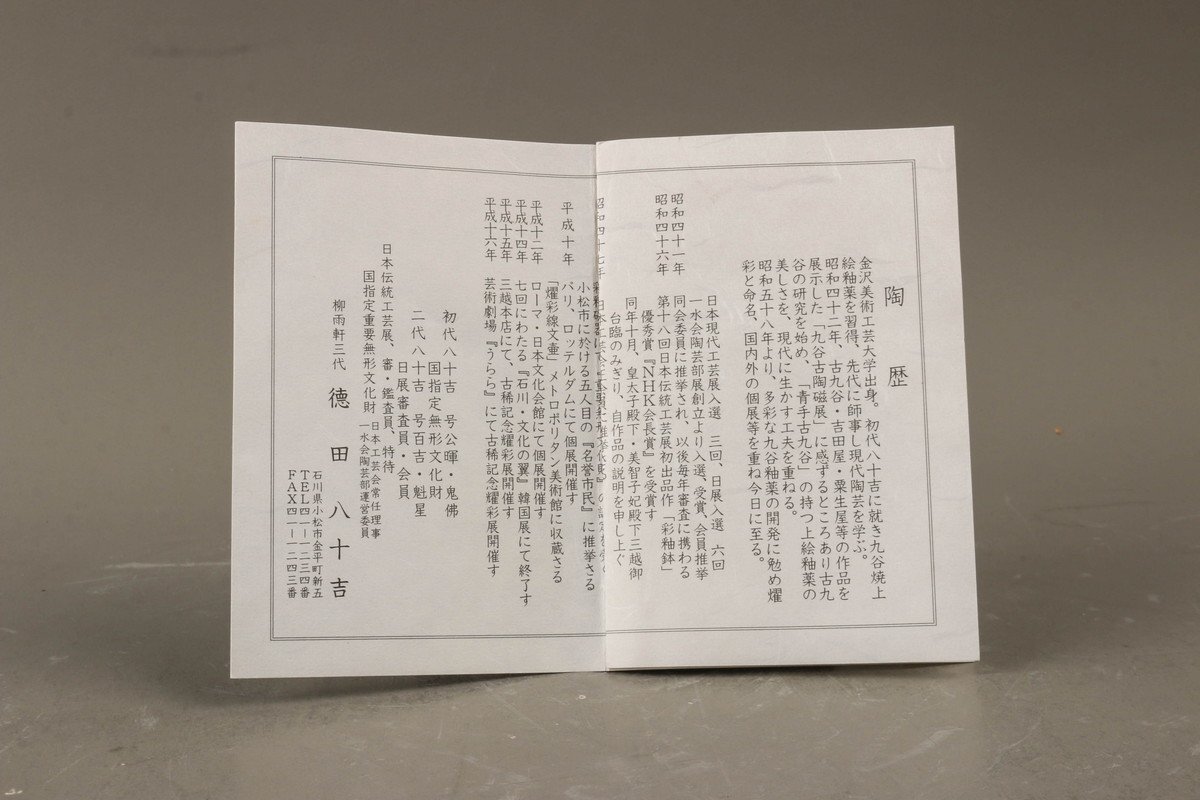 陶歴
金沢美術工芸大学出身。初代八十吉に就き九谷焼上
絵釉薬を習得、先代に師事し現代陶芸を学ぶ。
昭和四十二年、古九谷・吉田屋・粟生屋等の作品を
展示した「九谷古陶磁展」に感ずるところあり古九
谷の研究を始め、「青手古九谷」の持つ上絵釉薬の
美しさを、現代に生かす工夫を重ねる。
昭和五十八年より、多彩な九谷釉薬の開発に勉め燿
彩と命名、国内外の個展等を重ね今日に至る。
日本現代工芸展入選 三回、日展入選 六回
昭和四十一年 一水会陶芸部展創立より入選、受賞、会員推挙
同会委員に推挙され、以後毎年審査に携わる
昭和四十六年 第十八回日本伝統工芸展初出品作「彩釉鉢」
優秀賞『NHK会長賞』を受賞す
同年十月、皇太子殿下・美智子妃殿下三越御
台臨のみぎり、自作品の説明を申し上ぐ
昭和四十七年
小松市に於ける五人目の『名誉市民』に推挙さる
平成十年 パリ、ロッテルダムにて個展開催す
「燿彩線文壷」メトロポリタン美術館に収蔵さる
平成十二年 ローマ・日本文化会館にて個展開催す
平成十四年 七回にわたる『石川・文化の翼』韓国展にて終了す
平成十五年 三越本店にて、古稀記念燿彩展開催す
平成十六年 芸術劇場『うらら』にて古稀記念燿彩展開催す
初代八十吉 号公暉・鬼佛
国指定無形文化財
二代八十吉 号百吉・魁星
日展審査員・会員
日本伝統工芸展、審・鑑査員、特待
国指定重要無形文化財 日本工芸会常任理事
一水会陶芸部運営委員
柳雨軒三代 徳田八十吉
石川県小松市金平町新五
TEL四一ー一二三四番
FAX四一ー一二四三番